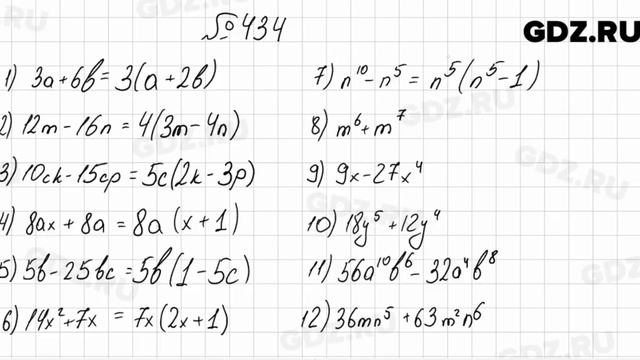 №434
GDZ.RU
1) 3a+6b=3(a+2b)
2) 12m-16n=4(3m-4n)
3) 10ck-15cp=5c(2k-3p)
4) 8ax+8a=8a(x+1)
5) 5b-25bc=5b(1-5c)
6) 14x²+7x=7x(2x+1)
7) n¹⁰-n⁵=n⁵(n⁵-1)
8) m⁶+m⁷
9) 9x-27x⁴
10) 18y⁵+12y⁴
11) 56a¹⁰b⁶-32a⁴b⁸
12) 36mn⁵+63m²n⁶